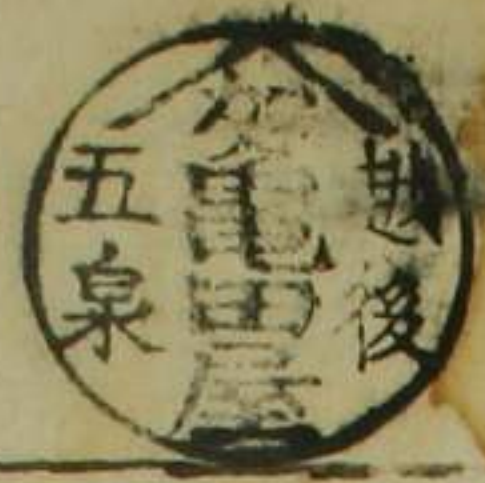 越後
龜田屋
五泉